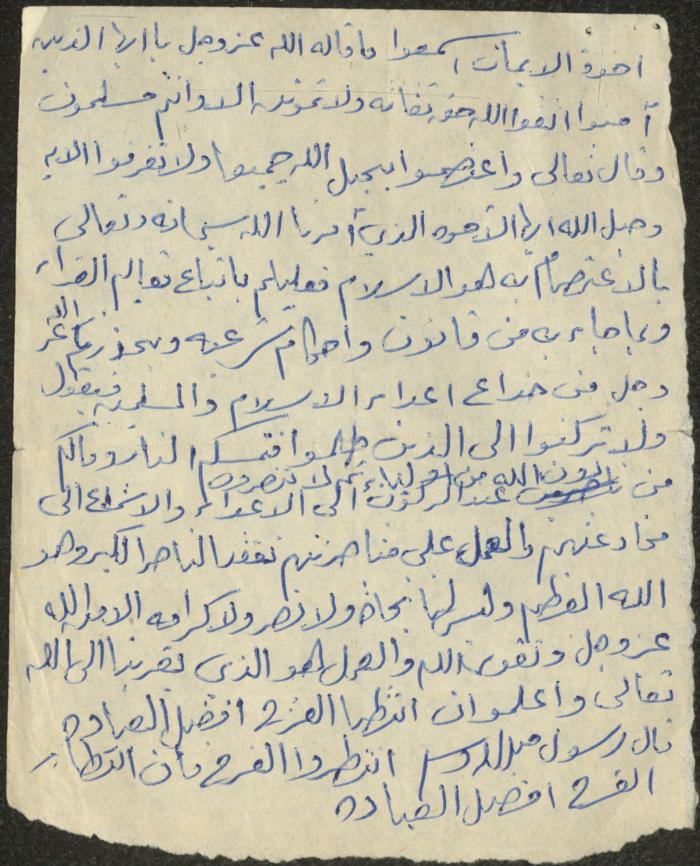 اخوة الايمان اسمعوا ما قاله الله عز وجل يا ايها الذين
آمنوا اتقوا الله حق تقاته ولا تموتن الا وانتم مسلمون
وقال تعالى واعتصموا بحبل الله جميعا ولا تفرقوا الايه
وحبل الله ايها الاخوه الذي آمرنا الله سبحانه وتعالى
بالاعتصام به هو الاسلام فعليكم باتباع تعاليم القرآن
وبما جاء به من قانون واحكام شرعيه ويحذركم الله عز
وجل من خداع اعداء الاسلام والمسلمين فيقول
ولا تركنوا الى الذين ظلموا فتمسكم النار ومالكم
من دون الله من اولياء ثم لا تنصرون
عند الركون الى الاعداء والاستماع الى
مخادعتهم والعمل على مناصرتهم نفقد الناصر الاكبر وهو
الله العظيم وليس لنا نجاة ولا نصر ولا كرامه الا من الله
عز وجل وتقوى الله والعمل هو الذي يقربنا الى الله
تعالى واعلموا ان انتظار الفرج افضل العباده
قال رسول صلى الله وسلم انتظروا الفرج فان انتظار
الفرج افضل العباده